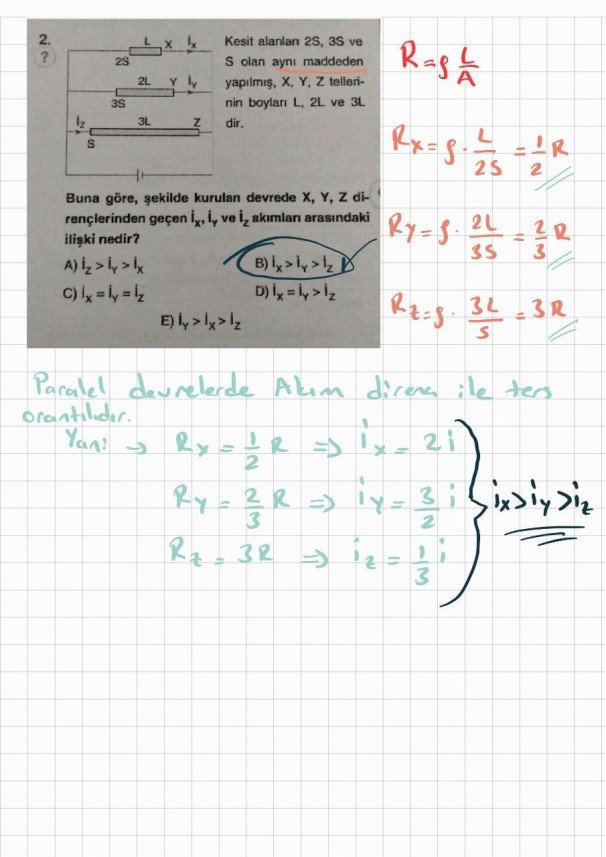 2.
?
L X İx
2S
2L Y İy
3S
İz 3L Z
S
Kesit alanları 2S, 3S ve
S olan aynı maddeden
yapılmış, X, Y, Z telleri-
nin boyları L, 2L ve 3L
dir.
Buna göre, şekilde kurulan devrede X, Y, Z di-
rençlerinden geçen İx, İy ve İz akımları arasındaki
ilişki nedir?
A) İz > İy > İx
B) İx > İy > İz
C) İx = İy = İz
D) İx = İy > İz
E) İy > İx > İz
R = ρ L/A
Rx = ρ · L/2S = 1/2 R
Ry = ρ · 2L/3S = 2/3 R
Rz = ρ · 3L/S = 3R
Paralel devrelerde Akım direnç ile ters
orantılıdır.
Yani → Rx = 1/2 R ⇒ ix = 2i
Ry = 2/3 R ⇒ iy = 3/2 i
Rz = 3R ⇒ iz = 1/3 i
ix > iy > iz